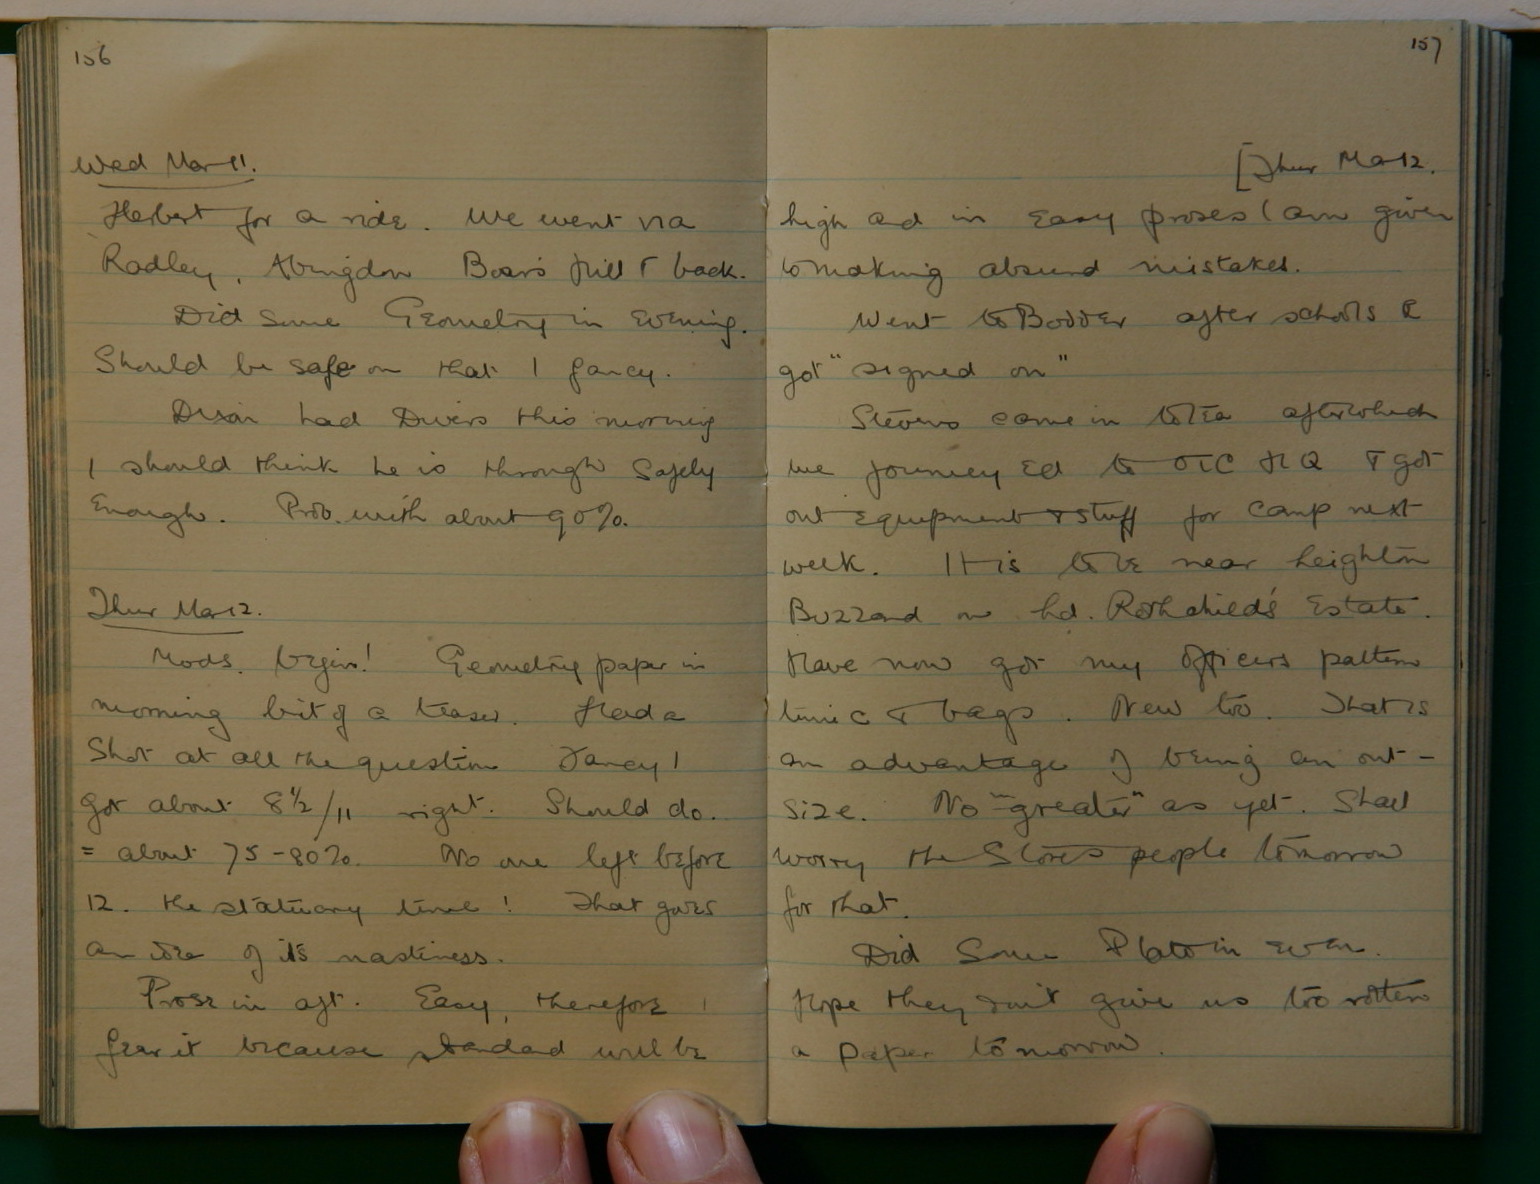 156
Wed Mar 11.
Herbert for a ride. We went via
Radley, Abingdon Boars Hill & back.
Did some Geometry in Evening.
Should be safe on that I fancy.
Dixon had Divers this morning
I should think he is through safely
Enough. Prob. with about 90%.
Thur Mar 12.
Mods. begin! Geometry paper in
morning bit of a teaser. Had a
Shot at all the question Fancy I
got about 8½/11 right. Should do.
= about 75-80%. No one left before
12. the statuary time! That gives
an idea of its nastiness.
Prose in aft. Easy, therefore I
fear it because standard will be
157
[Thur Mar 12.
high and in Easy proses I am given
to making absurd mistakes.
Went to Bodder after schools &
got "signed on"
Stevens came in to tea after which
we journeyed to OTC HQ & got
out equipment & stuff for camp next
week. It is to be near Leighton
Buzzard on Ld. Rothchild's Estate.
Have now got my officers pattern
tunic & bags. New too. That is
an advantage of being an out-
size. No "greater" as yet. Shall
worry the Stores people tomorrow
for that.
Did Some Plato in even.
Hope they don't give us too rotten
a paper tomorrow.